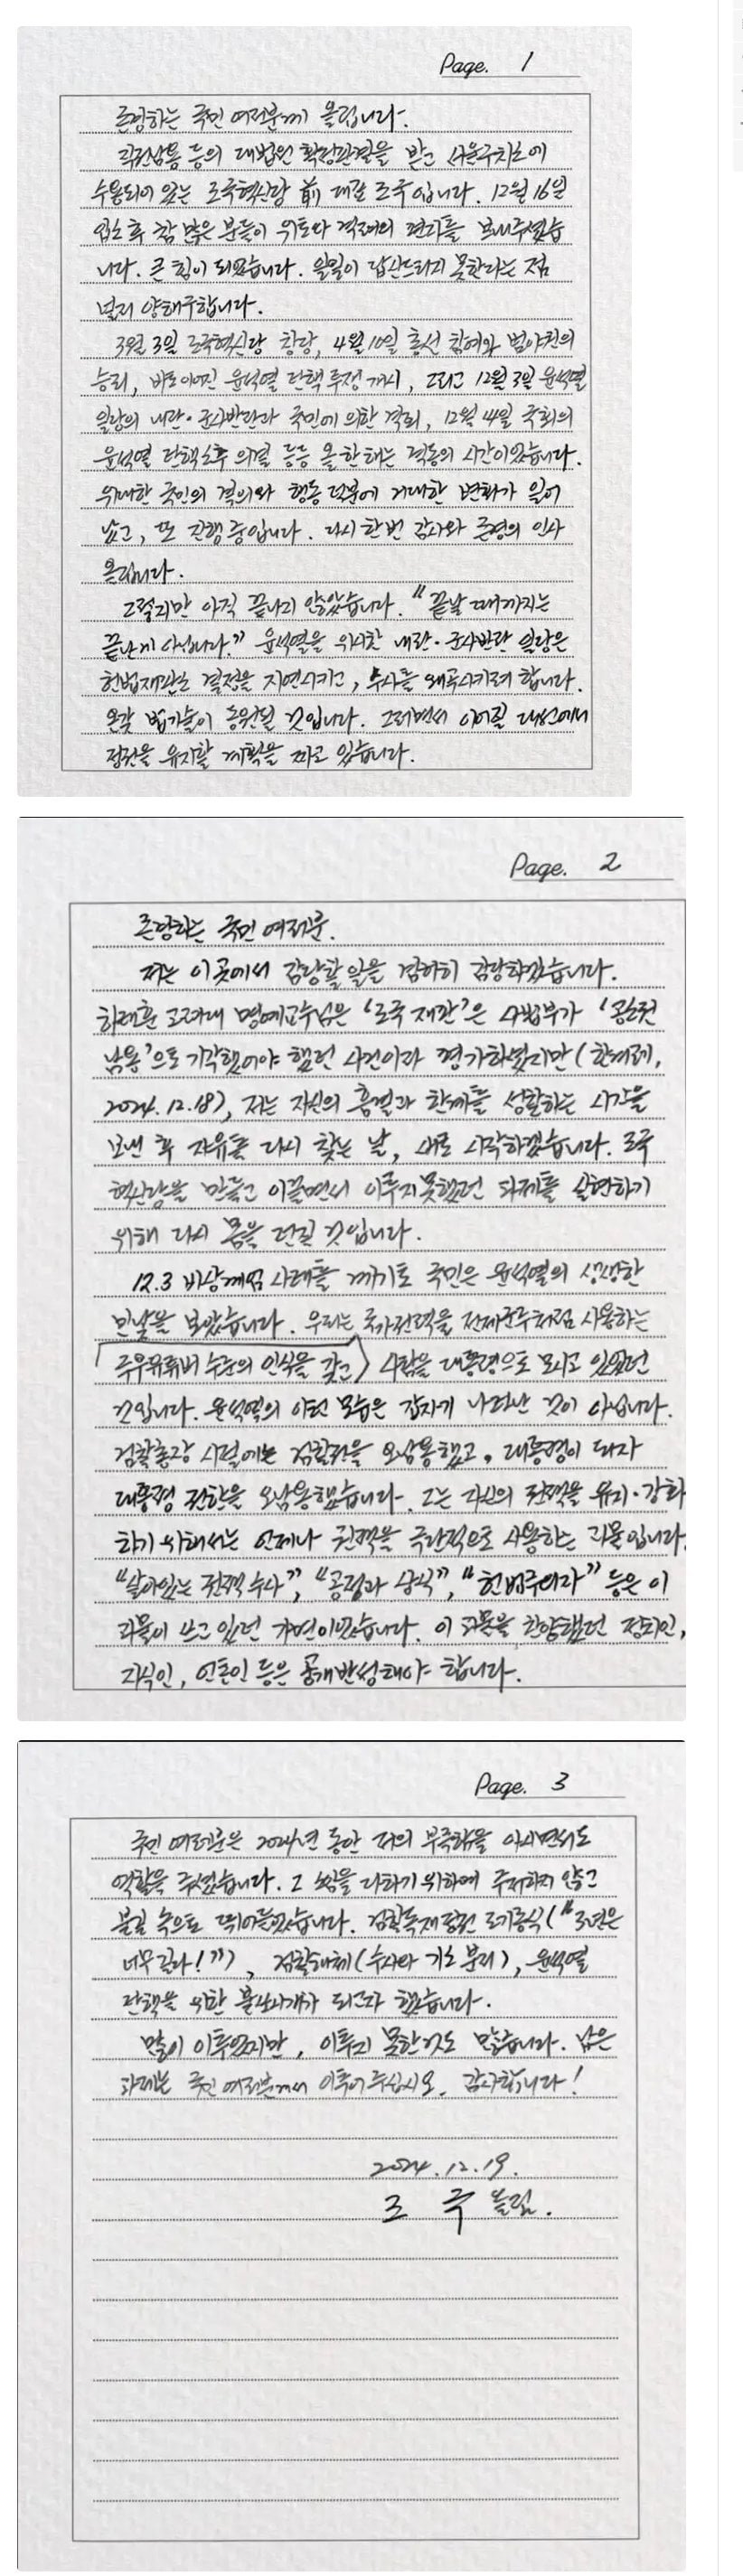 Page. 1
존경하는 국민 여러분께 올립니다.
직권남용 등의 대법원 확정판결을 받고 서울구치소에
수용되어 있는 조국혁신당 前 대표 조국입니다. 12월 16일
입소 후 참 많은 분들이 위로와 격려의 편지를 보내주셨습
니다. 큰 힘이 되었습니다. 일일이 답신드리지 못한다는 점
널리 양해구합니다.
3월 3일 조국혁신당 창당, 4월 10일 총선 참여와 범야권의
승리, 바로 이어진 윤석열 탄핵 투쟁 개시, 그리고 12월 3일 윤석열
일당의 내란·군사반란과 국민에 의한 격퇴, 12월 14일 국회의
윤석열 탄핵소추 의결 등등 올 한 해는 격동의 시간이었습니다.
위대한 국민의 결의와 행동 덕분에 거대한 변화가 일어
났고, 또 진행 중입니다. 다시 한번 감사와 존경의 인사
올립니다.
그렇지만 아직 끝나지 않았습니다. "끝날 때까지는
끝난 게 아닙니다." 윤석열을 위시한 내란·군사반란 일당은
헌법재판소 결정을 지연시키고, 수사를 왜곡시키려 합니다.
온갖 법기술이 동원될 것입니다. 그러면서 이어질 대선에서
정권을 유지할 계획을 짜고 있습니다.
Page. 2
존경하는 국민 여러분.
저는 이곳에서 감당할 일을 겸허히 감당하겠습니다.
하태훈 고려대 명예교수님은 '조국 재판'은 사법부가 '공소권
남용'으로 기각했어야 했던 사건이라 평가하셨지만 (한겨레,
2024. 12. 18), 저는 자신의 흠결과 한계를 성찰하는 시간을
보낸 후 자유를 다시 찾는 날, 새로 시작하겠습니다. 조국
혁신당을 만들고 이끌면서 이루지 못했던 과제를 실현하기
위해 다시 몸을 던질 것입니다.
12.3 비상계엄 사태를 계기로 국민은 윤석열의 생생한
민낯을 보았습니다. 우리는 국가권력을 전제군주처럼 사용하는
극우유튜버 수준의 인식을 갖고 사람을 대통령으로 모시고 있었던
것입니다. 윤석열의 이런 모습은 갑자기 나타난 것이 아닙니다.
검찰총장 시절에는 검찰권을 오남용했고, 대통령이 되자
대통령 권한을 오남용했습니다. 그는 자신의 권력을 유지·강화
하기 위해서는 언제나 권력을 극단적으로 사용하는 괴물입니다.
"살아있는 권력 수사", "공정과 상식", "헌법주의자" 등은 이
괴물이 쓰고 있던 가면이었습니다. 이 괴물을 찬양했던 정치인,
지식인, 언론인 등은 공개반성해야 합니다.
Page. 3
국민 여러분은 2024년 동안 저의 부족함을 아시면서도
역할을 주셨습니다. 그 소임을 다하기 위하여 주저하지 않고
불길 속으로 뛰어들었습니다. 검찰독재정권 조기종식 ("3년은
너무 길다!"), 검찰해체 (수사와 기소 분리), 윤석열
탄핵을 위한 불쏘시개가 되고자 했습니다.
많이 이루었지만, 이루지 못한 것도 많습니다. 남은
과제는 국민 여러분께서 이루어주십시오. 감사합니다!
2024. 12. 19.
조 국 올림.